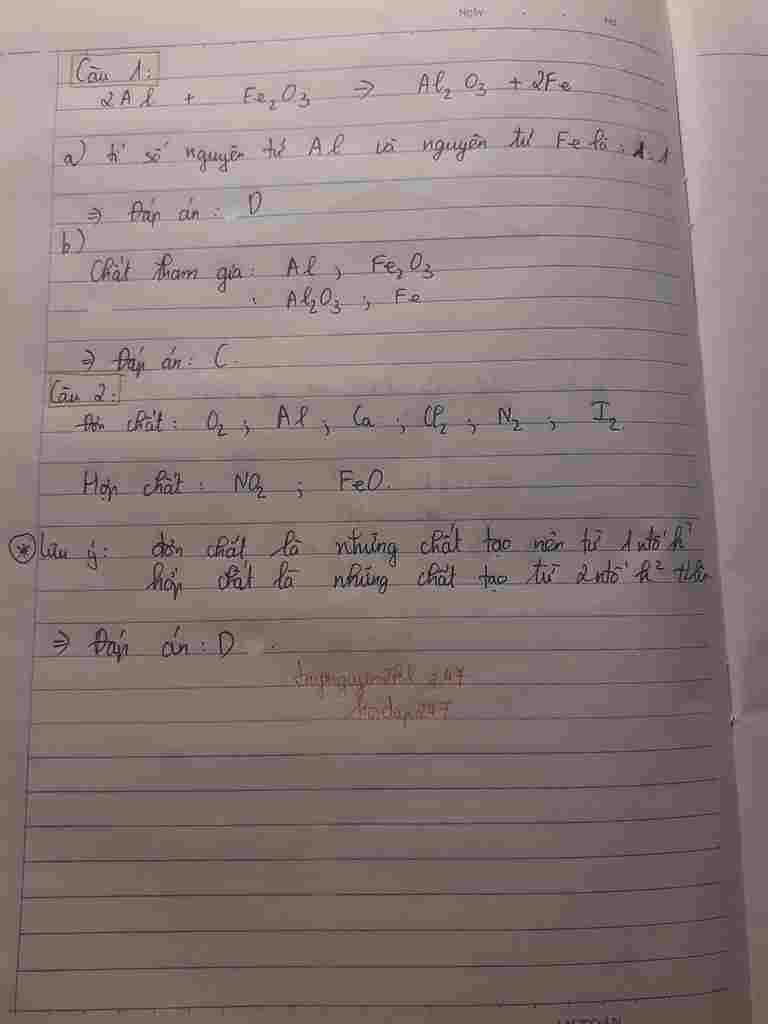 Ngày
No
Câu 1:
2Al + Fe2O3 => Al2O3 + 2Fe
a) tỉ số nguyên tử Al và nguyên tử Fe là: 1:1
=> Đáp án: D
b)
Chất tham gia: Al ; Fe2O3
: Al2O3 ; Fe
=> Đáp án: C.
Câu 2:
Đơn chất: O2 ; Al ; Ca ; Cl2 ; N2 ; I2
Hợp chất: NO2 ; FeO.
* Lưu ý: đơn chất là những chất tạo nên từ 1 ntố h²
hợp chất là những chất tạo từ 2 ntố h²
=> Đáp án: D
hoidap247